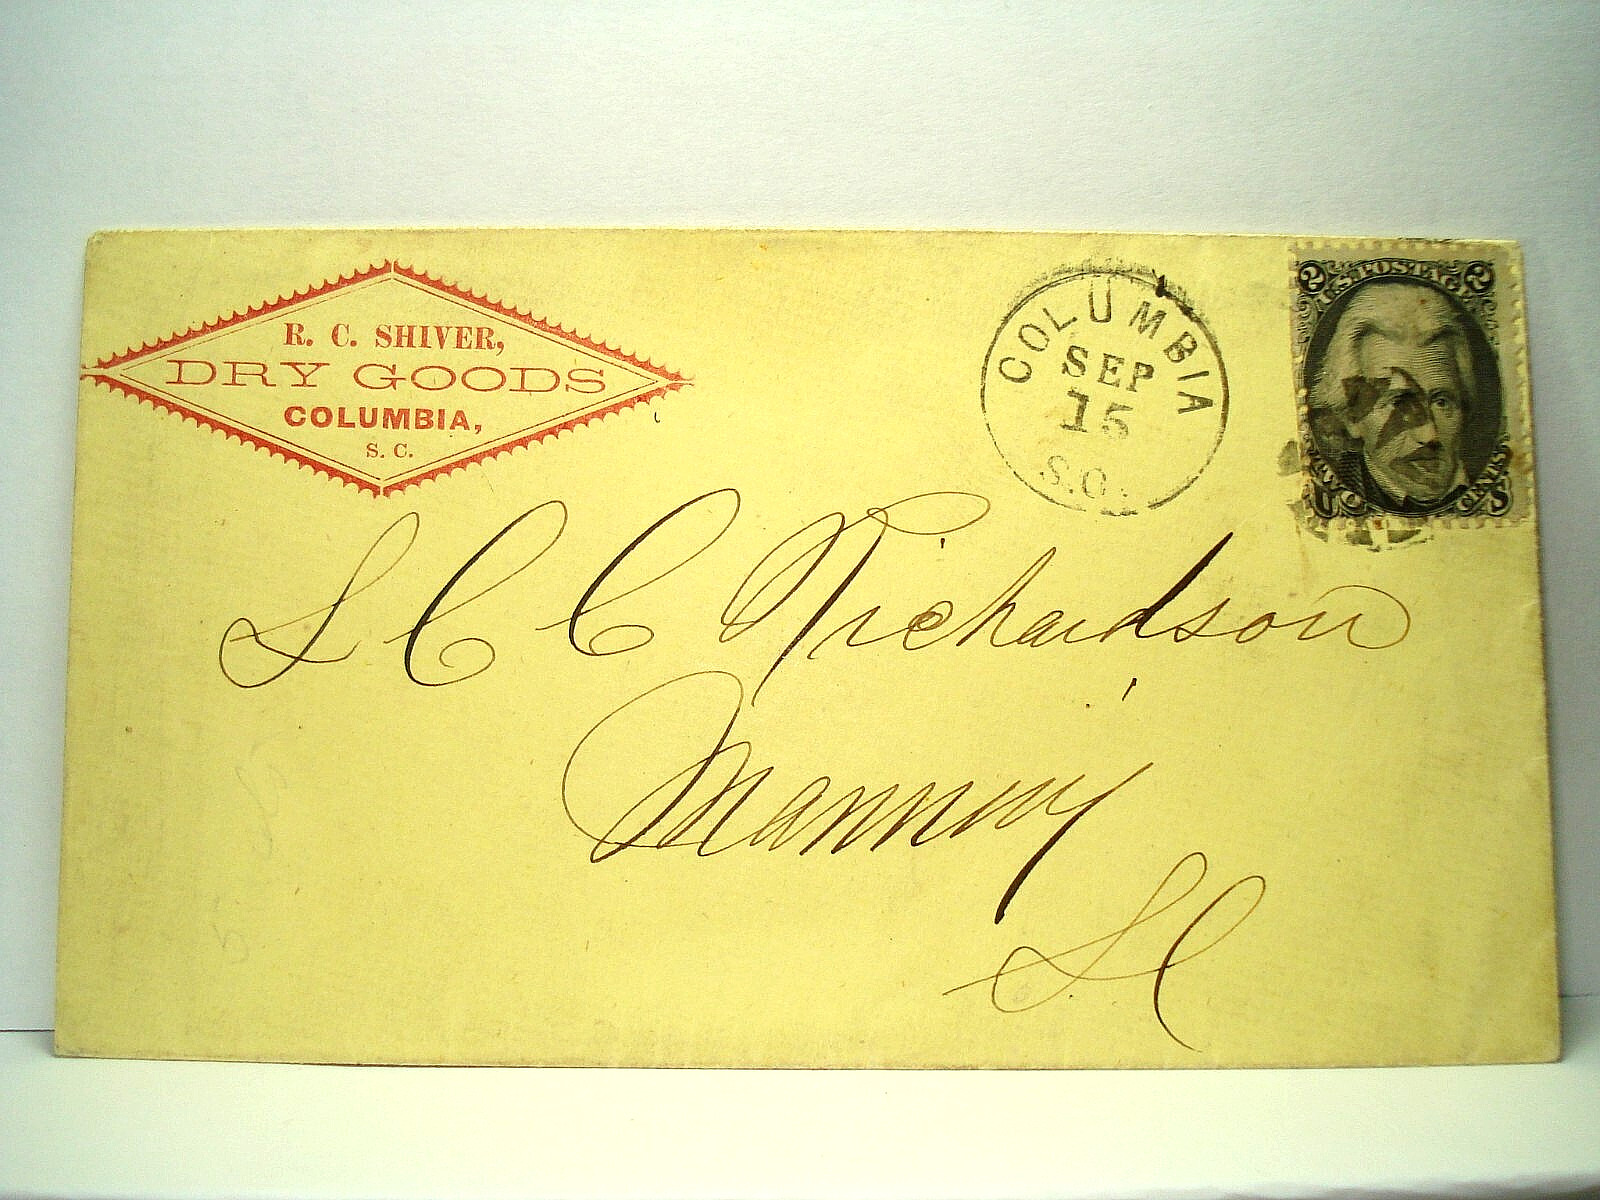 R. C. SHIVER,
DRY GOODS
COLUMBIA,
S. C.
COLUMBIA
SEP
15
S.C.
2 U.S. POSTAGE 2
TWO CENTS
U S
S C C Richardson
Manning
S C